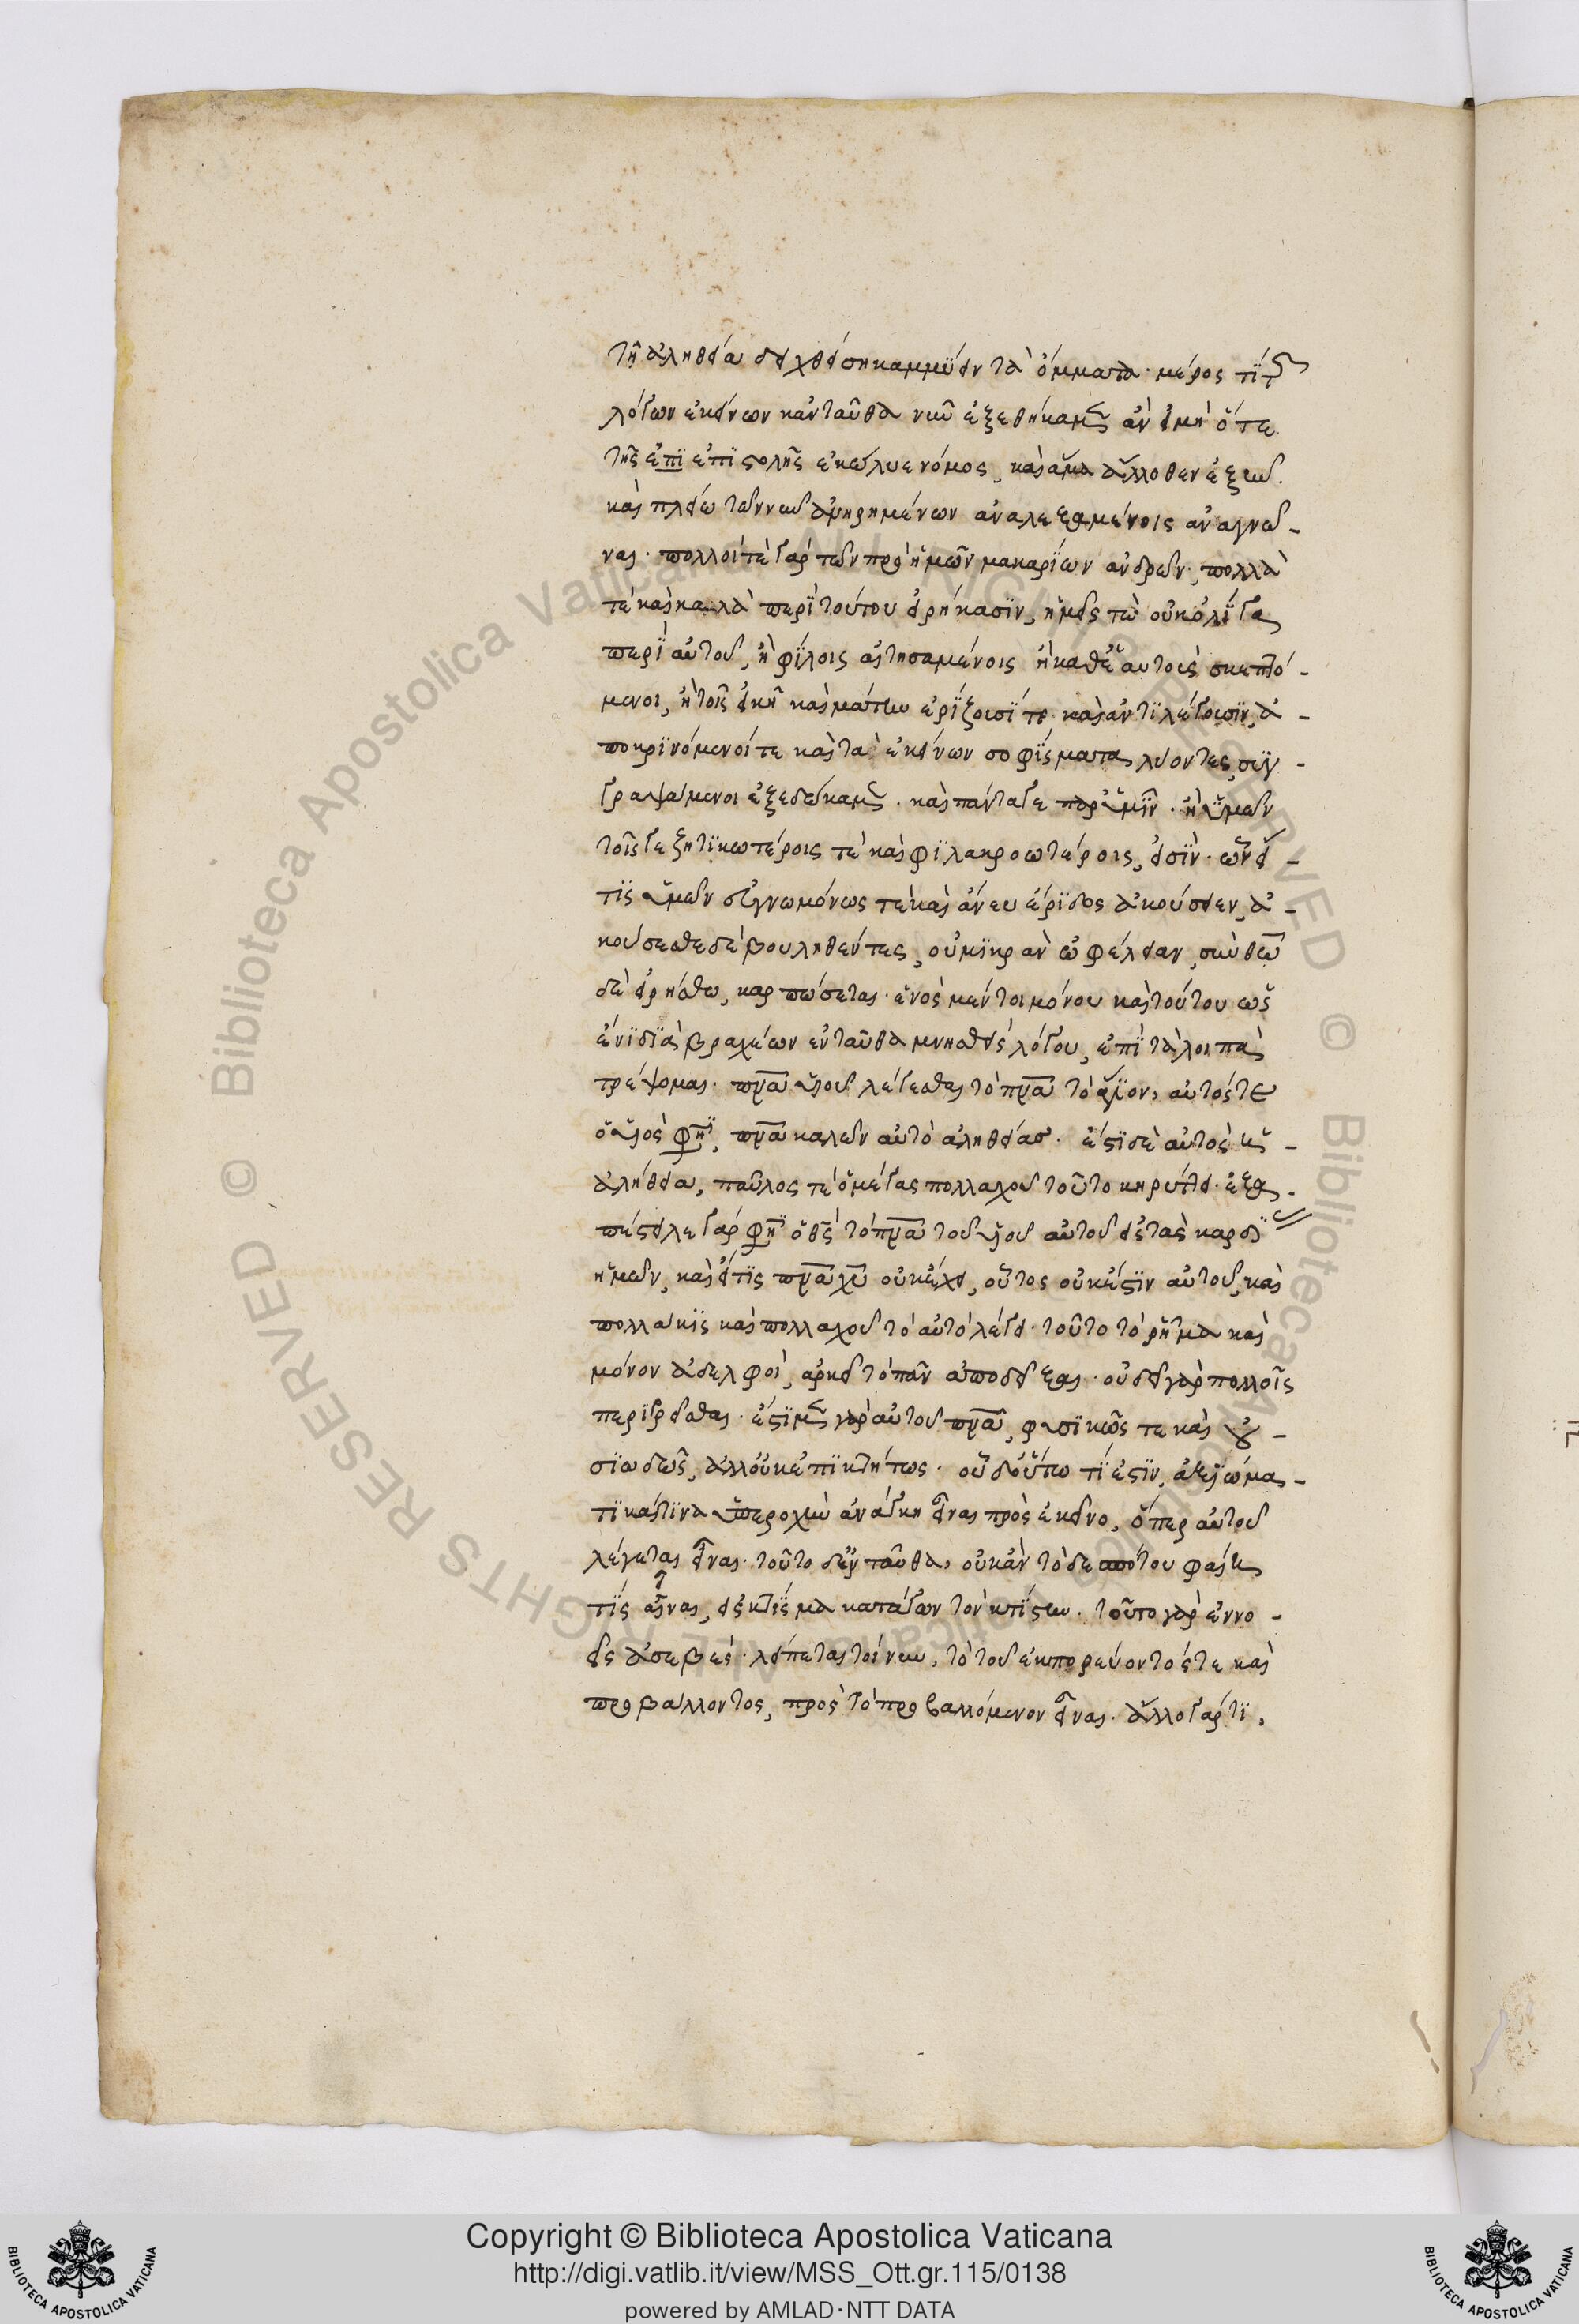 τῆ ἀληθεία δειχθείση καμμύειν τὰ ὄμματα· μέρος τί τ
λόγων ἐκείνων κἀνταῦθα νῦν ἐξεθήκαμεν ἂν εἰ μὴ ὅτε
τῆς ἐπὶ ἐπιστολῆς ἐκώλυε νόμος, καὶ ἅμα ἄλλοθεν ἐξὼν
καὶ πλείω τῶν νῦν εἰρημένων ἀναλεξαμένοις ἀναγνῶ-
ναι. πολλοί τε γὰρ τῶν πρὸ ἡμῶν μακαρίων ἀνδρῶν, πολλά
τε καὶ καλὰ περὶ τούτου εἰρήκασιν, ἡμεῖς τὲ οὐκ ὀλίγα
περὶ αὐτοῦ, ἢ φίλοις αἰτησαμένοις ἢ καθ' ἑαυτοὺς σκεπτό-
μενοι, ἢ τοῖς εἰκῆ καὶ μάτην ἐρίζουσί τε καὶ ἀντιλέγουσιν, ἀ-
ποκρινόμενοί τε καὶ τὰ ἐκείνων σοφίσματα λύοντες, συγ-
γραψάμενοι ἐξεδώκαμεν. καὶ πάντα γε παρ' ὑμῖν. ἢ ὑμῶν
τοῖς γε ζητικωτέροις τὲ καὶ φιλακροωτέροις, εἰσὶν. ὧν εἴ-
τις ὑμῶν εὐγνωμόνως τὲ καὶ ἄνευ ἔριδος ἀκούσειεν, ἀ-
κούσεσθε δὲ βουληθέντες, οὐ μικρὰν ὠφέλειαν, σὺν θεῶ
δὲ εἰρήσθω, καρπώσεται. ἑνὸς μέντοι μόνου καὶ τούτου ὡς
ἔνι διὰ βραχέων ἐνταῦθα μνησθεὶς λόγου, ἐπὶ τὰ λοιπὰ
τρέψομαι. πνα υἱοῦ λέγεσθαι τὸ πνα τὸ ἅγιον, αὐτός τε
ὁ υἱὸς φησὶ, πνα καλῶν αὐτὸ ἀληθείας. ἔστι δὲ αὐτὸς ἡ
ἀλήθεια, παῦλος τὲ ὁ μέγας πολλαχοῦ τοῦτο κηρύττει. ἐξα-
πέστειλε γάρ φησὶ ὁ θς τὸ πνα τοῦ υἱοῦ αὐτοῦ εἰς τὰς καρδί
ἡμῶν, καὶ εἴ τις πνα χυ οὐκ ἔχει, οὗτος οὐκ ἔστιν αὐτοῦ, καὶ
πολλάκις καὶ πολλαχοῦ τὸ αὐτὸ λέγει. τοῦτο τὸ ῥῆμα καὶ
μόνον ἀδελφοὶ, ἀρκεῖ τὸ πᾶν ἀποδεῖξαι. οὐ δεῖ γὰρ πολλοῖς
περιγρ σθαι. ἔστι μὲν γὰρ αὐτοῦ πνα, φυσικῶς τε καὶ οὐ-
σιωδῶς, ἀλλ' οὐκ ἐπικτήτως. οὗ δ' οὕτω τί ἐστιν, ἀξίωμα
τι καὶ τινα ὑπεροχὴν ἀνάγκη εἶναι πρὸς ἐκεῖνο, ὅπερ αὐτοῦ
λέγεται εἶναι. τοῦτο δ' ἐνταῦθα, οὐκ ἂν τὸ δεσπότου φαίη
τίς εἶναι, εἰς κτίσμα κατάγων τὸν κτίστην. τοῦτο γὰρ ἐννο-
εῖς ἀσεβές. λείπεται τοίνυν, τὸ τοῦ ἐκπορεύοντός τε καὶ
προβάλλοντος, πρὸς τὸ προβαλλόμενον εἶναι. ἄλλο γάρ τι,
Copyright © Biblioteca Apostolica Vaticana
http://digi.vatlib.it/view/MSS_Ott.gr.115/0138
powered by AMLAD·NTT DATA